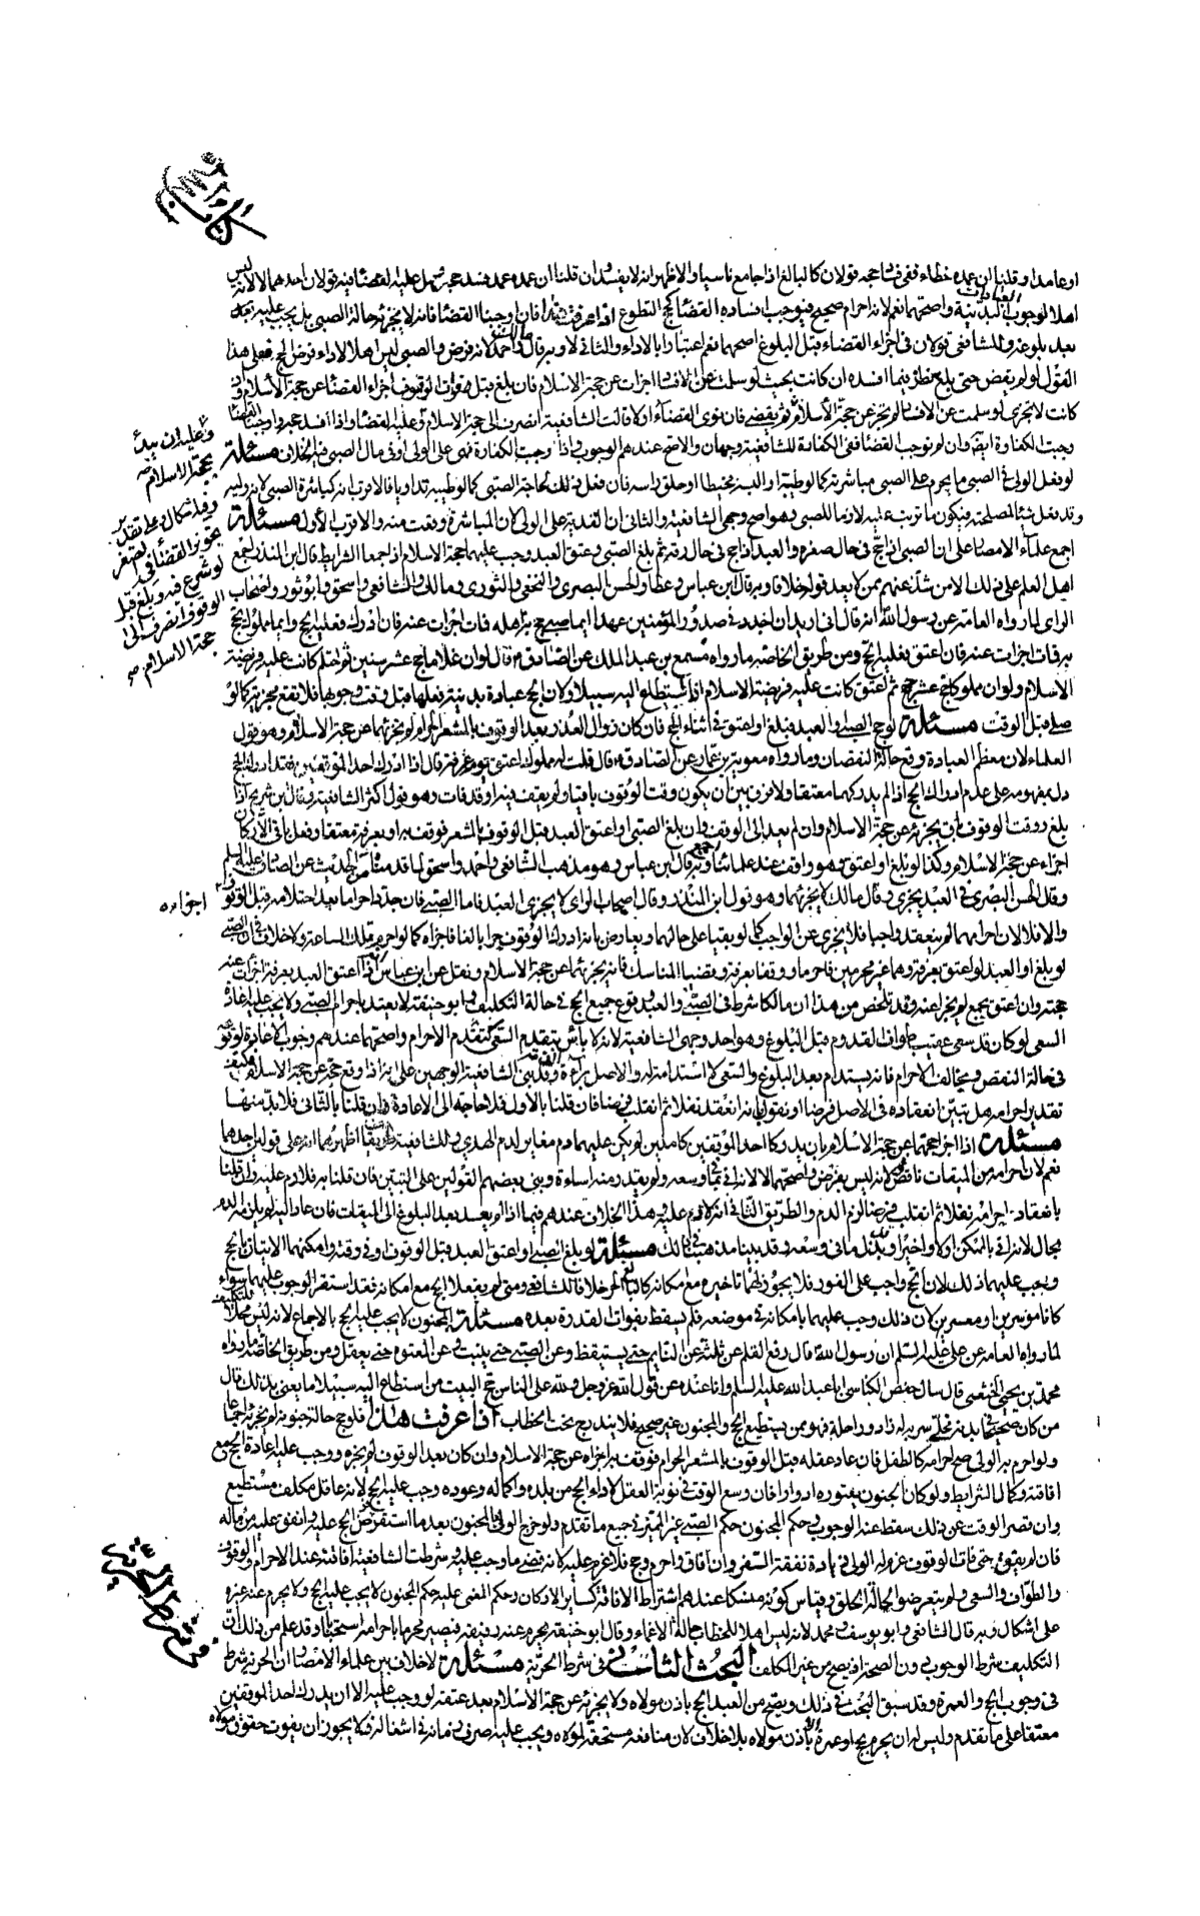 او عامدا وقلنا ان عمده خطاء ففي فساد حجه قولان كالبالغ اذا جامع ناسيا والاظهر انه لا يفسد وان قلنا ان عمده عمد فسد حجه وهل عليه القضاء فيه قولان احدهما لا لانه ليس
اهلا لوجوب العبادات البدنية واصحهما نعم لانه احرام صحيح فيوجب افساده القضاء كحج التطوع اذا عرفت هذا فان اوجبنا القضاء فانه لا يجزيه حالة الصبى بل يجب عليه بعد
بعد بلوغه وللشافعي قولان في اجزاء القضاء قبل البلوغ اصحهما نعم اعتبارا بالاداء والثاني لا وبه قال مالك واحمد لانه فرض والصبي ليس اهلا لاداء فرض الحج فعلى هذا
القول لو لم يقض حتى بلغ نظر فيما افسده ان كانت بحيث لو سلمت عن الافساد اجزات عن حجة الاسلام فان بلغ قبل فوات الوقوف اجزاه القضاء عن حجة الاسلام وان
كانت لا تجزى لو سلمت عن الافساد لم تجز عن حجة الاسلام ثم يقضي فان نوى القضاء اولا قالت الشافعية انصرف الى حجة الاسلام وعليه القضاء واذا افسد حجه واوجبنا القضاء
وجبت الكفارة ايضا وان لم نوجب القضاء ففي الكفارة للشافعية وجهان والاصح عندهم الوجوب واذا وجبت الكفارة فهي على الولي او في مال الصبي فيه الخلاف مسئلة
لو فعل الولي في الصبي ما يحرم على الصبي مباشرته كما لو طيبه او البسه مخيطا او حلق راسه فان فعل ذلك لحاجة الصبي كما لو طيبه تداويا فالاقرب انه كمباشرة الصبي لانه وليه
وقد فعل شيئا لمصلحته فيكون ما ترتب عليه لازما للصبي وهو اصح وجهي الشافعية والثاني ان الفدية على الولي كان المباشرة وقعت منه والاقرب الاول مسئلة
اجمع علماء الامصار على ان الصبي اذا حج في حال صغره والعبد اذا حج في حال رقه ثم بلغ الصبي وعتق العبد وجب عليهما حجة الاسلام اذا جمعا الشرايط قال ابن المنذر اجمع
اهل العلم على ذلك الا من شذ عنهم ممن لا يعد قوله خلافا وبه قال ابن عباس وعطا والحسن البصري والنخعي والثوري ومالك والشافعي واسحق وابو ثور واصحاب
الراى لما رواه العامة عن رسول الله انه قال اني اريد ان اجدد في صدور المؤمنين عهدا ايما صبي حج به اهله فمات اجزات عنه فان ادرك فعليه الحج وايما مملوك حج
به فمات اجزات عنه فان اعتق فعليه الحج ومن طريق الخاصة ما رواه مسمع بن عبد الملك عن الصادق قال لو ان غلاما حج عشر سنين ثم احتلم كانت عليه فريضة
الاسلام ولو ان مملوكا حج عشر حجج ثم اعتق كانت عليه فريضة الاسلام اذا استطاع اليه سبيلا ولان الحج عبادة بدنية فعلها قبل وقت وجوبها فلا تقع مجزية كما لو
صلى قبل الوقت مسئلة لو حج الصبي والعبد فبلغ او اعتق في اثناء الحج فان كان زوال العذر بعد الوقوف بالمشعر الحرام لم يجزئهما عن حجة الاسلام وهو قول
العلماء لان معظم العبادة وقع حالة النقصان وما رواه معوية بن عمار عن الصادق قال قلت له مملوك اعتق يوم عرفة قال اذا ادرك احد الموقفين فقد ادرك الحج
دل بمفهومه على عدم ادراك الحج اذا لم يدركهما معتقا ولا فرق بين ان يكون وقت الوقوف باقيا ولم يقف فيه او قد فات وهو قول اكثر الشافعية وقال ابن شريح اذا
بلغ ووقت الوقوف باق يجزئه عن حجة الاسلام وان لم يعد الى الموقف وان بلغ الصبي او اعتق العبد قبل الوقوف بالمشعر فوقف به او بعرفة معتقا وفعل باقي الاركان
اجزاه عن حجة الاسلام وكذا لو بلغ او اعتق وهو واقف عند علمائنا اجمع وبه قال ابن عباس وهو مذهب الشافعي واحمد واسحق لما قدمناه من الحديث عن الصادق عليه السلم
وقال الحسن البصري في العبد يجزي وقال مالك لا يجزئهما وهو قول ابن المنذر وقال اصحاب الراى لا يجزي العبد فاما الصبي فان جدد احراما بعد احتلامه قبل الوقوف
والا فلا لان احرامهما لم ينعقد واجبا فلا يجزي عن الواجب كما لو بقيا على حالهما ويعارض بانه ادرك الوقوف حرا بالغا فاجزاه كما لو احرم تلك الساعة ولا خلاف في ان الصبي
لو بلغ او العبد لو اعتق بعرفة وهما غير محرمين فاحرما ووقفا بعرفة وقضيا المناسك فانه يجزئهما عن حجة الاسلام ونقل عن ابن عباس اذا اعتق العبد بعرفة اجزات عنه
حجته وان اعتق بجمع لم يجز عنه وقد تلخص من هذا ان مالكا شرط في الصبي والعبد وقوع جميع الحج في حالة التكليف وابو حنيفة لا يعتد باحرام الصبي ولا يجب عليه اعادة
السعي لو كان قد سعى عقيب طواف القدوم قبل البلوغ وهو احد وجهي الشافعية لانه لا باس بتقدم السعي كتقدم الاحرام واصحهما عندهم وجوب الاعادة لوقوعه
في حالة النقص ويخالف الاحرام فانه يستدام بعد البلوغ والسعي لا استدامة له والاصل براءة الذمة وقد بنى الشافعية الوجهين على انه اذا وقع حجه عن حجة الاسلام فكيف
تقدير احرامه هل يتبين انعقاده في الاصل فرضا او نقول بانه انعقد نفلا ثم انقلب فرضا فان قلنا بالاول فلا حاجة الى الاعادة وان قلنا بالثاني فلا بد منها
مسئلة اذا اجزا حجهما عن حجة الاسلام بان يدركا احد الموقفين كاملين لم يكن عليهما دم مغاير لدم الهدي وللشافعية طريقان اظهرهما انه على قولين احدهما
نعم لان احرامه من الميقات ناقص لانه ليس بفرض واصحهما لا لانه اتى بما في وسعه ولم يصدر منه اساءة وبنى بعضهم القولين على التبين فان قلنا به فلا دم عليه وان قلنا
بانعقاد احرامه نفلا ثم انقلب فرضا لزم الدم والطريق الثاني انه لا دم عليه وهذا الخلاف عندهم فيما اذا لم يعد بعد البلوغ الى الميقات فان عاد اليه لم يلزمه الدم
بحال لانه اتى بالممكن اولا واخيرا وبذل ما في وسعه وقد بينا مذهبنا في ذلك مسئلة لو بلغ الصبي او اعتق العبد قبل الوقوف او في وقته وامكنهما الاتيان بالحج
وجب عليهما ذلك لان الحج واجب على الفور فلا يجوز لهما تاخيره مع امكانه كالبالغ الحر خلافا للشافعي ومتى لم يفعلا الحج مع امكانه فقد استقر الوجوب عليهما سواء
كانا موسرين او معسرين لان ذلك وجب عليهما بامكانه في موضعه فلم يسقط بفوات القدرة بعده مسئلة المجنون لا يجب عليه الحج بالاجماع لانه ليس محلا للتكليف
لما رواه العامة عن علي عليه السلم ان رسول الله قال رفع القلم عن ثلثة عن النايم حتى يستيقظ وعن الصبي حتى يثبت وعن المعتوه حتى يعقل ومن طريق الخاصة ما رواه
محمد بن يحيى الخثعمي قال سال حفص الكناسي ابا عبد الله عليه السلم وانا عنده عن قول الله عز وجل ولله على الناس حج البيت من استطاع اليه سبيلا ما يعني بذلك قال
من كان صحيحا في بدنه مخلى سربه له زاد وراحلة فهو ممن يستطيع الحج والمجنون غير صحيح فلا يندرج تحت الخطاب اذا عرفت هذا فلو حج حالة جنونه لم يجزئه اجماعا
ولو احرم به الولي صح احرامه كالطفل فان عاد عقله قبل الوقوف بالمشعر الحرام فوقف به اجزاه عن حجة الاسلام وان كان بعد الوقوف لم يجزه ووجب عليه اعادة الحج مع
افاقته وكمال الشرايط ولو كان الجنون يعتوره ادوارا فان وسع الوقت في نوبة العقل لاداء الحج من بلده واكماله وعوده وجب عليه الحج لانه عاقل مكلف مستطيع
وان قصر الوقت عن ذلك سقط عنه الوجوب وحكم المجنون حكم الصبي غير المميز في جميع ما تقدم ولو خرج الولي بالمجنون بعد ما استقر فرض الحج عليه وانفق عليه من ماله
فان لم يفق حتى فات الوقوف غرم له الولي زيادة نفقة السفر وان افاق واحرم وحج فلا غرم عليه لانه قضى ما وجب عليه وشرطت الشافعية افاقته عند الاحرام والوقوف
والطواف والسعي ولم يتعرضوا لحالة الحلق وقياس كونه نسكا عندهم اشتراط الافاقة كساير الاركان وحكم المغمى عليه حكم المجنون لا يجب عليه الحج ولا يحرم عنه غيره
على اشكال وبه قال الشافعي وابو يوسف ومحمد لانه ليس اهلا للخطاب حالة الاغماء وقال ابو حنيفة يحرم عنه رفيقه فيصير محرما باحرامه استحبابا وقد علم من ذلك ان
التكليف شرط الوجوب دون الصحة اذ يصح من غير المكلف البحث الثاني في شرط الحرية مسئلة لا خلاف بين علماء الامصار ان الحرية شرط
في وجوب الحج والعمرة وقد سبق البحث في ذلك ويصح من العبد الحج باذن مولاه ولا يجزئه عن حجة الاسلام بعد عتقه لو وجب عليه الا ان يدرك احد الموقفين
معتقا على ما تقدم وليس له ان يحرم بحج او عمرة الا باذن مولاه بلا خلاف لان منافعه مستحقة لمولاه ويجب عليه صرف زمانه في اشغاله فلا يجوز ان يفوت حقوق مولاه
وعليه ان يبدأ
بحجة الاسلام
وفيه اشكال وعلى تقدير
تجويز القضاء في الصغر
لو شرع فيه وبلغ قبل
الوقوف انصرف الى
حجة الاسلام
اجزاءه
في شرط الحرية